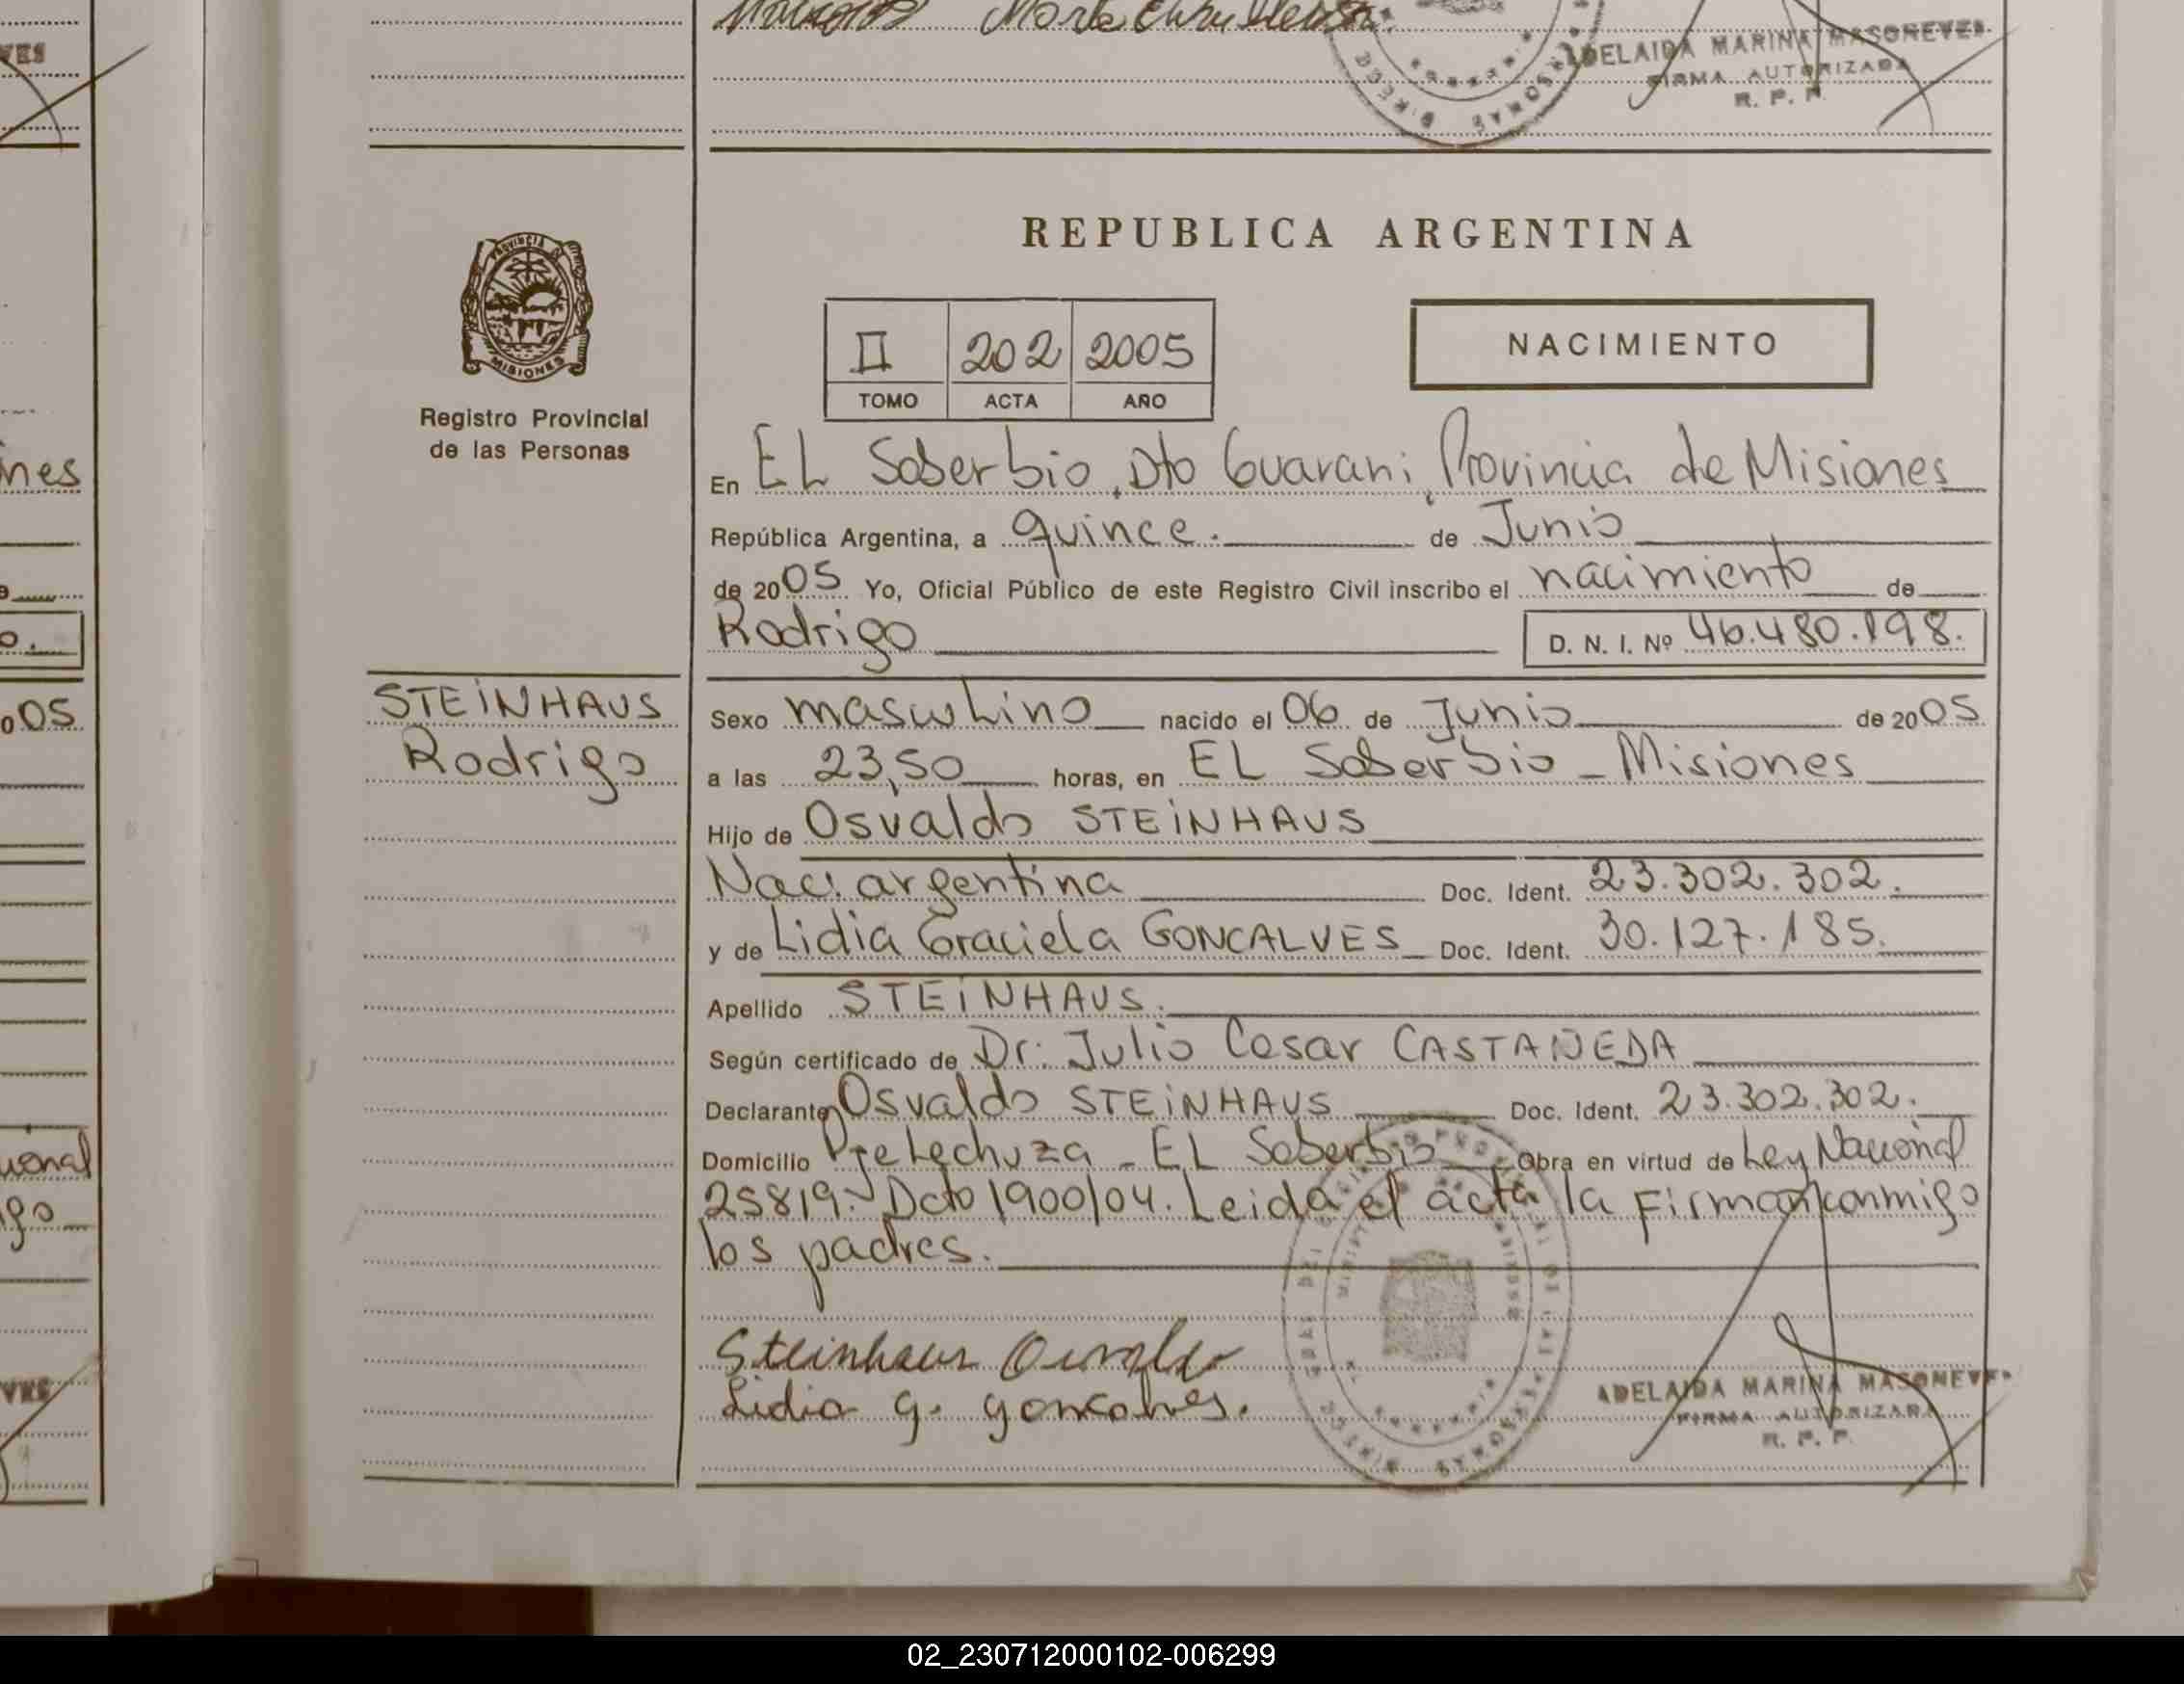 VES
ADELAIDA MARINA MASONEVES
FIRMA AUTORIZADA
R. P. P.
PROVINCIA
MISIONES
Registro Provincial
de las Personas
STEINHAUS
Rodrigo
REPUBLICA ARGENTINA
II 202 2005
TOMO ACTA AÑO
NACIMIENTO
En EL Soberbio, Dto Guarani, Provincia de Misiones
República Argentina, a quince. de Junio
de 2005 Yo, Oficial Público de este Registro Civil inscribo el nacimiento de
Rodrigo D. N. I. Nº 46.480.198.
Sexo masculino nacido el 06 de Junio de 2005
a las 23,50 horas, en EL Soberbio - Misiones
Hijo de Osvaldo STEINHAUS
Nac. argentina Doc. Ident. 23.302.302.
y de Lidia Graciela GONCALVES Doc. Ident. 30.127.185.
Apellido STEINHAUS.
Según certificado de Dr. Julio Cesar CASTAÑEDA
Declarante Osvaldo STEINHAUS Doc. Ident. 23.302.302.
Domicilio Pje Lechuza - EL Soberbio Obra en virtud de Ley Nacional
25819. Dcto 1900/04. Leida el acta la Firman conmigo
los padres.
Steinhaus Osvaldo
Lidia G. Goncalves.
ADELAIDA MARINA MASONEVES
FIRMA AUTORIZADA
R. P. P.
02_230712000102-006299